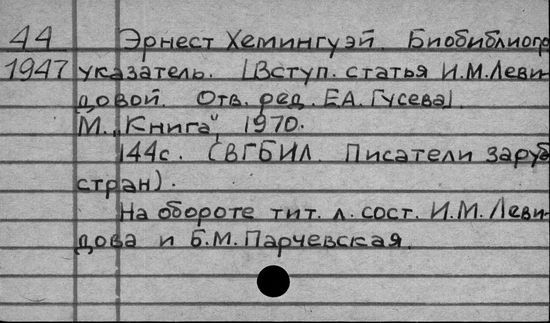 44 Эрнест Хемингуэй. Биобиблиогр
1947 указатель. [Вступ. статья И.М.Леви-
довой. Отв. ред. Е.А. Гусева].
М. „Книга", 1970.
144с. (ВГБИЛ. Писатели заруб
стран).
На обороте тит. л. сост. И.М. Леви-
дова и Б.М. Парчевская.